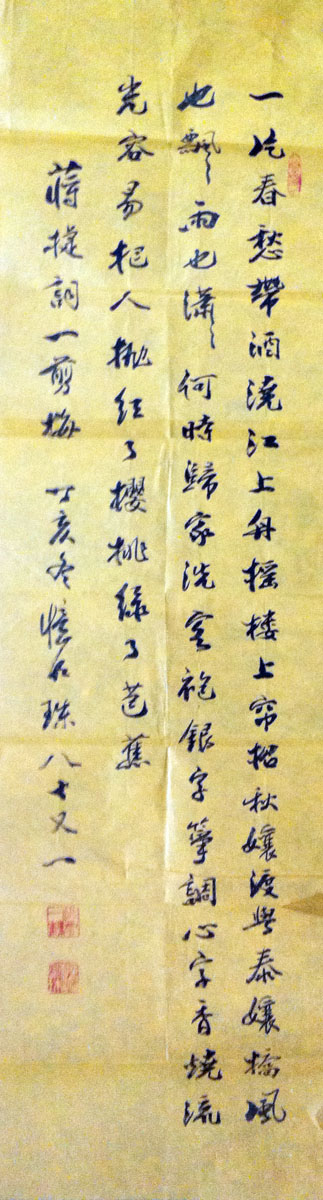 一片春愁帶酒澆江上舟摇楼上帘招秋孃渡與泰孃橋風
也飄〻雨也瀟〻何時歸家洗客袍銀字筝調心字香燒流
光容易把人抛红了櫻桃緑了芭蕉
蔣捷詞一剪梅 丁亥冬憶明珠八十又一